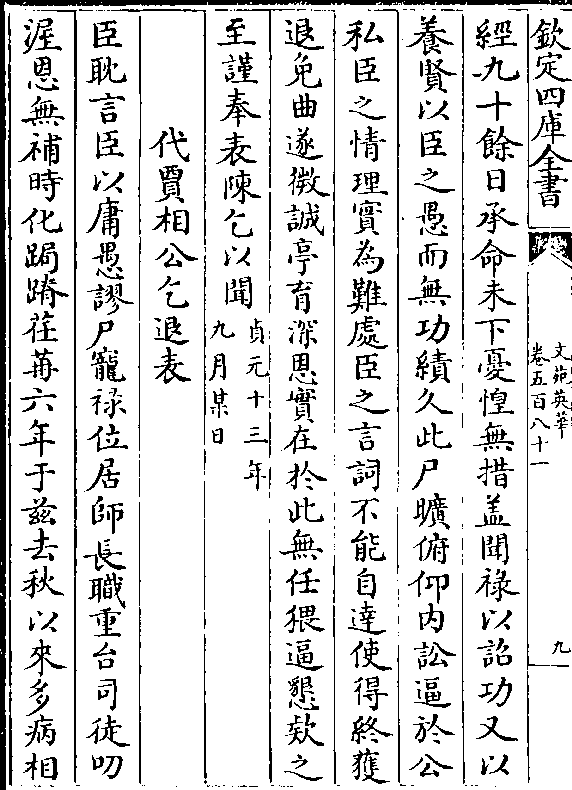 欽定四庫全書
文苑英華
卷五百八十一
九
經九十餘日承命未下憂惶無措盖聞祿以詔功又以
養賢以臣之愚而無功績久此尸曠俯仰内訟逼於公
私臣之情理實為難處臣之言詞不能自達使得終獲
退免曲遂微誠亭育深恩實在於此無任猥逼懇欵之
至謹奉表陳乞以聞
貞元十三年
九月某日
代賈相公乞退表
臣耽言臣以庸愚謬尸寵祿位居師長職重台司徒叨
渥恩無補時化跼蹐荏苒六年于兹去秋以來多病相